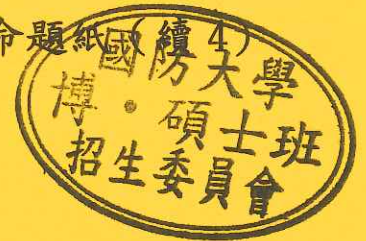 命題紙（續 4）
國防大學
博·碩士班
招生委員會